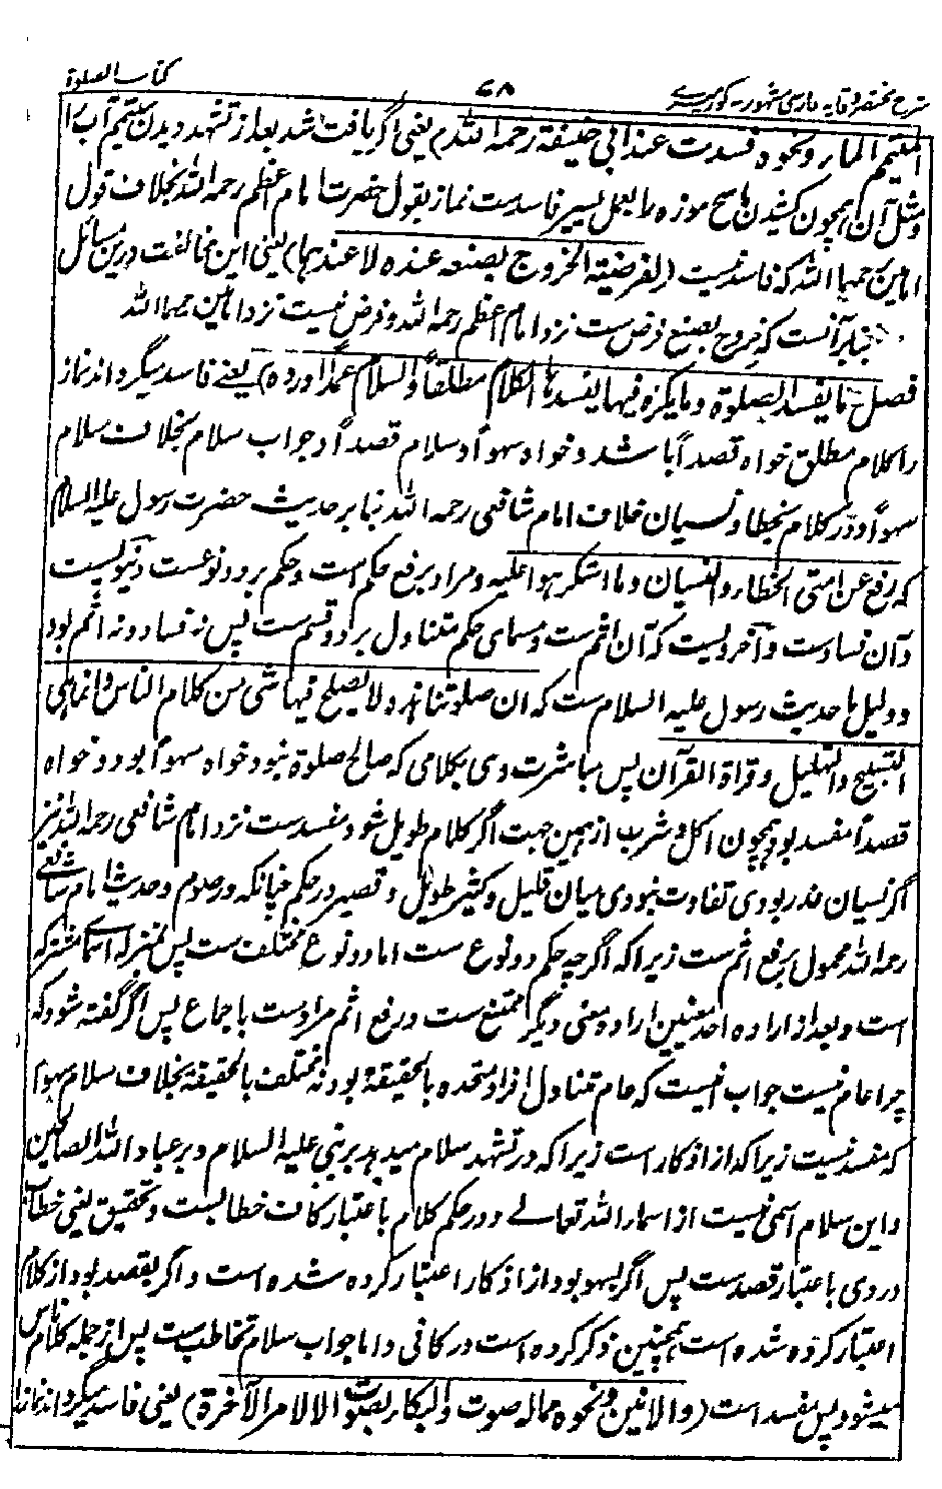 شرح مختصر وقایه فارسی مشهور به کور میری
۶۸
کتاب الصلوة
المتیمم الماء ونحوه فسدت عند ابی حنیفة رحمه الله) یعنی اگر یافت شد بعد از تشهد دیدن متیمم آب را
ومثل آن همچون کشیدن ماسح موزه را بعمل یسیر فاسدست نماز بقول حضرت امام اعظم رحمه الله بخلاف قول
امامین رحمهما الله که فاسد نیست (لفرضیة الخروج بصنعه عنده لا عندهما) یعنی این مخالفت درین مسائل
بنابر آنست که خروج بصنع فرض ست نزد امام اعظم رحمه الله وفرض نیست نزد امامین رحمهما الله
فصل ما یفسد الصلوة وما یکره فیها یفسدها الکلام مطلقاً والسلام عمداً ورده) یعنے فاسد میگرداند نماز
را کلام مطلق خواه قصداً باشد وخواه سهواً وسلام قصداً وجواب سلام بخلاف سلام
سهواً ودر کلام بخطا ونسیان خلاف امام شافعی رحمه الله بنا بر حدیث حضرت رسول علیه السلام
که رفع عن امتی الخطاء والنسیان وما استکرهوا علیه ومراد برفع حکم است وحکم بر دو نوعست دنیویست
وآن فسادست وآخرویست که آن اثم ست ومسمای حکم متناول بر دو قسم ست پس نه فساد ونه اثم بود
ودلیل ما حدیث رسول علیه السلام ست که ان صلوتنا هذه لا یصلح فیها شی من کلام الناس وانما هی
التسبیح والتهلیل وقراة القرآن پس مباشرت وی بکلامی که صالح صلوة نبود خواه سهواً بود وخواه
قصداً مفسد بود همچون اکل وشرب ازهمین جهت اگر کلام طویل شود مفسدست نزد امام شافعی رحمه الله نیز
اگر نسیان عذر بودی تفاوت نبودی میان قلیل وکثیر طویل وقصیر در حکم چنانکه در صوم وحدیث امام شافعی
رحمه الله محمول برفع اثم ست زیرا که اگرچه حکم دو نوع ست اما دو نوع مختلف ست پس بمنزله اسمای مشترکه
است وبعد از اراده احد معنیین اراده معنی دیگر ممتنع ست ورفع اثم مرادست باجماع پس اگر گفته شود که
چرا عام نیست جواب انیست که عام متناول افراد متحده بالحقیقة بود نه مختلف بالحقیقة بخلاف سلام سهواً
که مفسد نیست زیرا که از اذکار است زیرا که در تشهد سلام میدهد بر نبی علیه السلام وبر عباد الله الصالحین
واین سلام اسمی نیست از اسماء الله تعالے ودر حکم کلام باعتبار کاف خطابست وتحقیق یعنی خطاب
در وی باعتبار قصدست پس اگر بسهو بود از اذکار اعتبار کرده شده است واگر بقصد بود از کلام
اعتبار کرده شده است همچنین ذکر کرده است در کافی واما جواب سلام تخاطب ست پس از جمله کلام ناس
میشود پس مفسد است (والانین ونحوه مما له صوت والبکاء بصوت الا لامر الآخرة) یعنی فاسد میگرداند نماز را